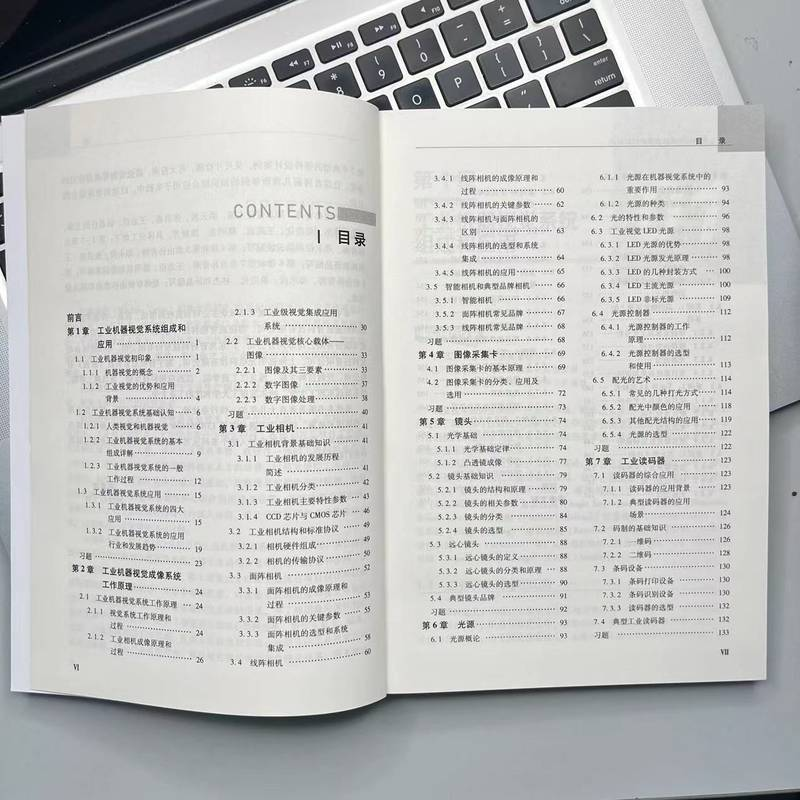 CONTENTS
目录
前言
第1章 工业机器视觉系统组成和
应用 1
1.1 工业机器视觉初印象 1
1.1.1 机器视觉的概念 2
1.1.2 工业视觉的优势和应用
背景 4
1.2 工业机器视觉系统基础认知 6
1.2.1 人类视觉和机器视觉 6
1.2.2 工业机器视觉系统的基本
组成详解 9
1.2.3 工业机器视觉系统的一般
工作过程 12
1.3 工业机器视觉系统应用 15
1.3.1 工业机器视觉系统的四大
应用 15
1.3.2 工业机器视觉系统的应用
行业和发展趋势 19
习题 23
第2章 工业机器视觉成像系统
工作原理 24
2.1 工业机器视觉系统工作原理 24
2.1.1 视觉系统工作原理和
过程 24
2.1.2 工业相机成像原理和
过程 26
VI
2.1.3 工业级视觉集成应用
系统 30
2.2 工业机器视觉核心载体——
图像 33
2.2.1 图像及其三要素 33
2.2.2 数字图像 37
2.2.3 数字图像处理 38
习题 40
第3章 工业相机 41
3.1 工业相机背景基础知识 41
3.1.1 工业相机的发展历程
简述 41
3.1.2 工业相机分类 42
3.1.3 工业相机主要特性参数 44
3.1.4 CCD芯片与CMOS芯片 46
3.2 工业相机结构和标准协议 48
3.2.1 相机硬件组成 48
3.2.2 相机的传输协议 48
3.3 面阵相机 51
3.3.1 面阵相机的成像原理和
过程 53
3.3.2 面阵相机的关键参数 55
3.3.3 面阵相机的选型和系统
集成 58
3.4 线阵相机 60
目 录
3.4.1 线阵相机的成像原理和
过程 60
3.4.2 线阵相机的关键参数 62
3.4.3 线阵相机与面阵相机的
区别 63
3.4.4 线阵相机的选型和系统
集成 64
3.4.5 线阵相机的应用 65
3.5 智能相机和典型品牌相机 66
3.5.1 智能相机 66
3.5.2 面阵相机常见品牌 67
3.5.3 线阵相机常见品牌 68
习题 68
第4章 图像采集卡 69
4.1 图像采集卡的基本原理 69
4.2 图像采集卡的分类、应用及
选用 72
习题 73
第5章 镜头 74
5.1 光学基础 74
5.1.1 光学基础定律 74
5.1.2 凸透镜成像 77
5.2 镜头基础知识 79
5.2.1 镜头的结构和原理 79
5.2.2 镜头的相关参数 80
5.2.3 镜头的分类 84
5.2.4 镜头的选型 85
5.3 远心镜头 88
5.3.1 远心镜头的定义 88
5.3.2 远心镜头的分类和原理 88
5.3.3 远心镜头的选型 90
5.4 典型镜头品牌 91
习题 92
第6章 光源 93
6.1 光源概论 93
6.1.1 光源在机器视觉系统中的
重要作用 93
6.1.2 光源的种类 94
6.2 光的特性和参数 96
6.3 工业视觉LED光源 98
6.3.1 LED光源的优势 98
6.3.2 LED光源发光原理 98
6.3.3 LED的几种封装方式 100
6.3.4 LED主流光源 100
6.3.5 LED非标光源 109
6.4 光源控制器 112
6.4.1 光源控制器的工作
原理 112
6.4.2 光源控制器的选型
和使用 113
6.5 配光的艺术 114
6.5.1 常见的几种打光方式 114
6.5.2 配光中颜色的应用 118
6.5.3 其他配光结构的应用 119
6.5.4 光源的选型 122
习题 122
第7章 工业读码器 123
7.1 读码器的综合应用 123
7.1.1 读码器的应用背景 123
7.1.2 典型读码器的应用
场景 124
7.2 码制的基础知识 126
7.2.1 一维码 126
7.2.2 二维码 128
7.3 条码设备 130
7.3.1 条码打印设备 130
7.3.2 条码识别设备 130
7.3.3 读码器的选型 132
7.4 典型工业读码器 132
习题 133
VII